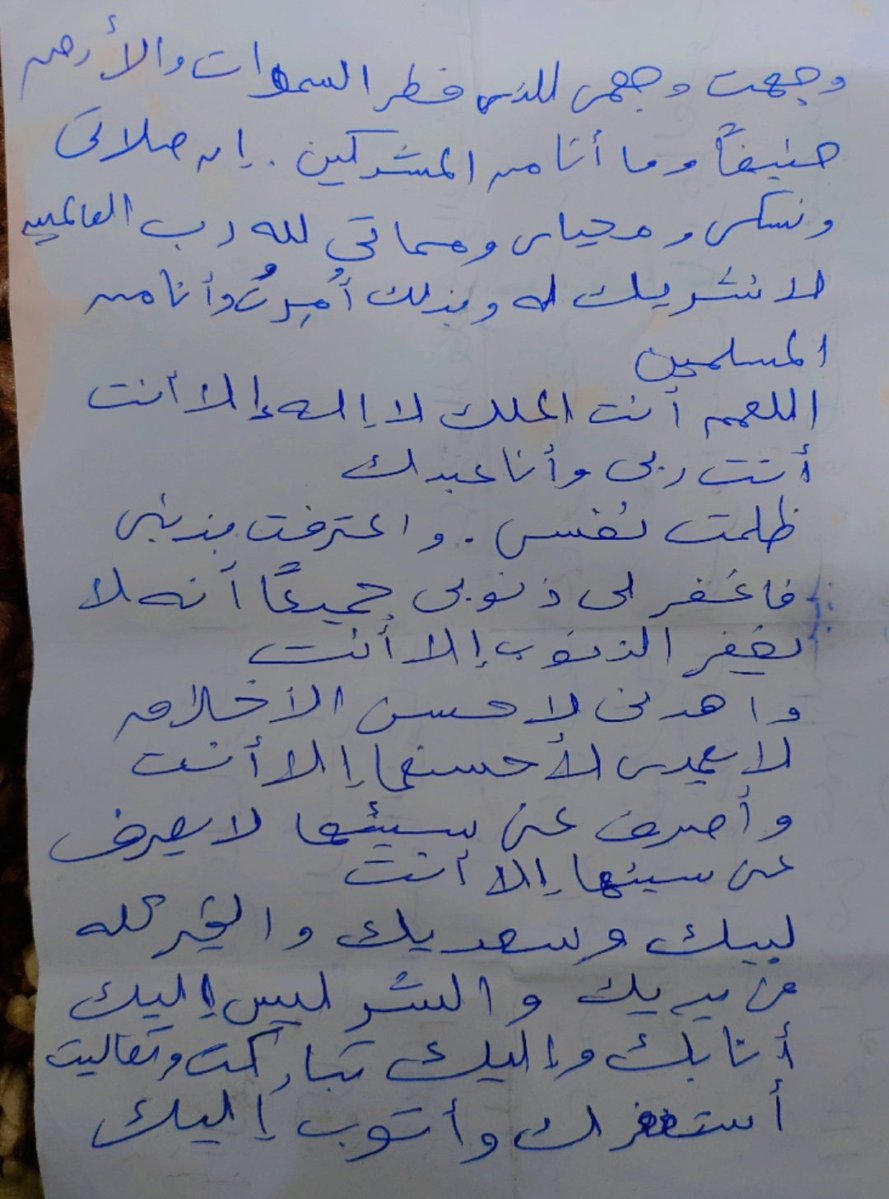 وجهت وجهى للذى فطر السموات والأرض
حنيفاً وما أنا من المشركين . إن صلاتى
ونسكى ومحياى ومماتي لله رب العالمين
لا شريك له وبذلك أُمِرتُ وأنا من
المسلمين
اللهم أنت الملك لا إله إلا أنت
أنت ربى وأنا عبدك
ظلمت نفسى . واعترفت بذنبى
فاغفر لى ذنوبى جميعاً أنه لا
يغفر الذنوب إلا أنت
واهدنى لاحسن الأخلاق
لا يهدى لأحسنها إلا أنت
وأصرف عنى سيئها لا يصرف
عنى سيئها إلا أنت
لبيك وسعديك والخير كله
فى يديك والشر ليس إليك
أنا بك وإليك تباركت وتعاليت
أستغفرك وأتوب إليك